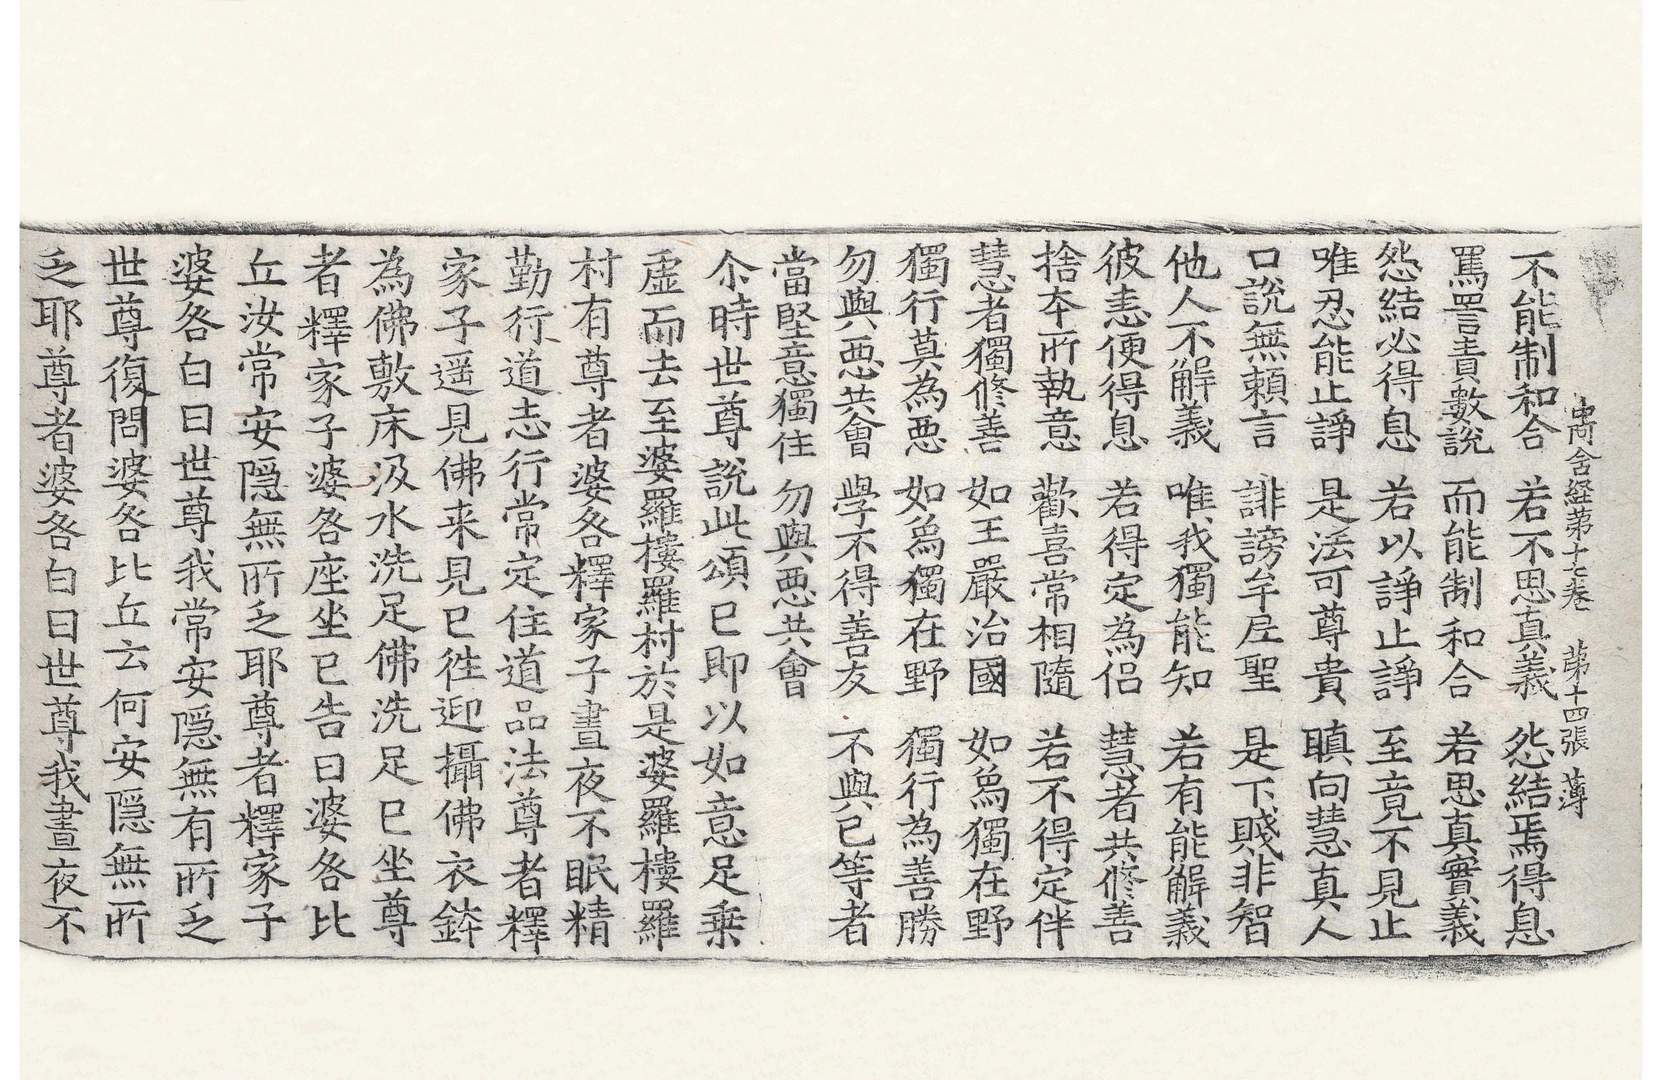 中阿含経苐十七卷 苐十四張 薄
不能制和合 若不思真義 怨結焉得息
罵詈責數說 而能制和合 若思真實義
怨結必得息 若以諍止諍 至竟不見止
唯忍能止諍 是法可尊貴 瞋向慧真人
口說無賴言 誹謗牟尼聖 是下賤非智
他人不解義 唯我獨能知 若有能解義
彼恚便得息 若得定為侶 慧者共修善
捨本所執意 歡喜常相隨 若不得定伴
慧者獨修善 如王嚴治國 如爲獨在野
獨行莫為惡 如爲獨在野 獨行為善勝
勿與惡共會 學不得善友 不與己等者
當堅意獨住 勿與惡共會
尒時世尊說此頌已即以如意足乗
虛而去至婆羅樓羅村於是婆羅樓羅
村有尊者婆咎釋家子晝夜不眠精
勤行道志行常定住道品法尊者釋
家子遥見佛来見已徃迎攝佛衣鉢
為佛敷床汲水洗足佛洗足已坐尊
者釋家子婆咎座坐已告曰婆咎比
丘汝常安隱無所乏耶尊者釋家子
婆咎白曰世尊我常安隱無有所乏
世尊復問婆咎比丘云何安隱無所
乏耶尊者婆咎白曰世尊我晝夜不